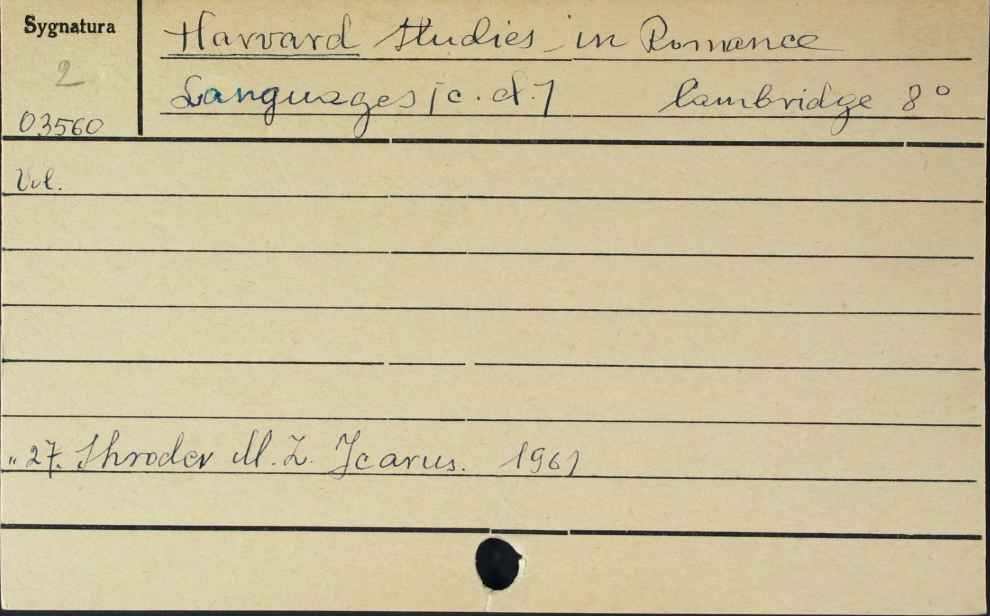 Sygnatura
2
03560
Harvard Studies in Romance
Languages [c. d.] Cambridge 8°
Vol.
" 27. Shroder M. Z. Icarus. 1961